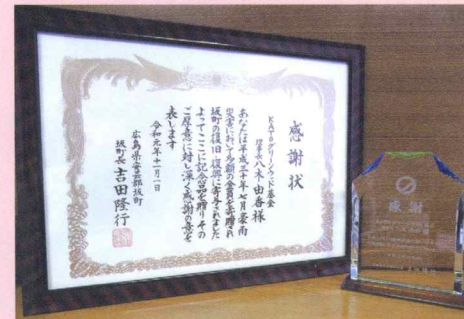 感謝状
KATOグリーンウッド基金
理事長 八木由香様
あなたは平成三十年七月豪雨
災害において多額の金員を寄贈され
坂町の復旧・復興に寄与されました
よってここに記念品を贈りその
ご厚意に対し深く感謝の意を
表します
令和元年十一月一日
広島県安芸郡坂町
坂町長 吉田隆行
感謝